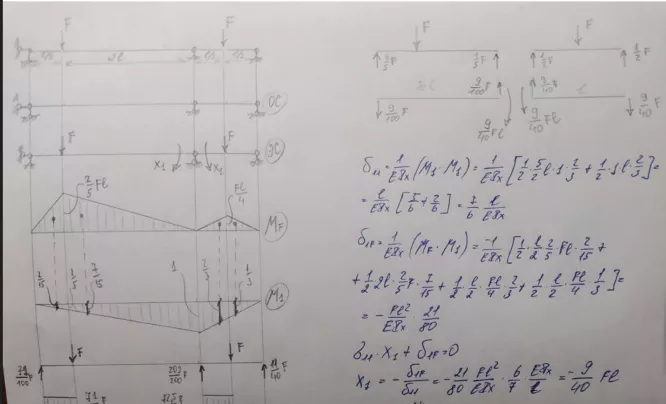 F F
2l
ОС
F F
ЭС
X₁ X₁
2/5 Fl
Fl/4
M_F
2/15 1/5 7/15 1 2/3 1/3
M₁
F F
71/100 F
F F
2/5 F 3/5 F 1/2 F 1/2 F
9/100 F 9/100 F 9/40 F 9/40 F
9/40 Fl 9/40 Fl
δ₁₁ = 1/EJx (M₁ · M₁) = 1/EJx [1/2 · 5/2 l · 1 · 2/3 + 1/2 · 1 · l · 2/3] =
= l/EJx [5/6 + 2/6] = 7/6 l/EJx
δ₁F = 1/EJx (M_F · M₁) = -1/EJx [1/2 · l/2 · 2/5 · Fl · 2/15 +
+ 1/2 · 2l · 2/5 F · 7/15 + 1/2 · l/2 · Fl/4 · 2/3 + 1/2 · l/2 · Fl/4 · 1/3] =
= - Fl²/EJx · 21/80
δ₁₁ · X₁ + δ₁F = 0
X₁ = - δ₁F/δ₁₁ = - 21/80 Fl²/EJx · 6/7 EJx/l = - 9/40 Fl